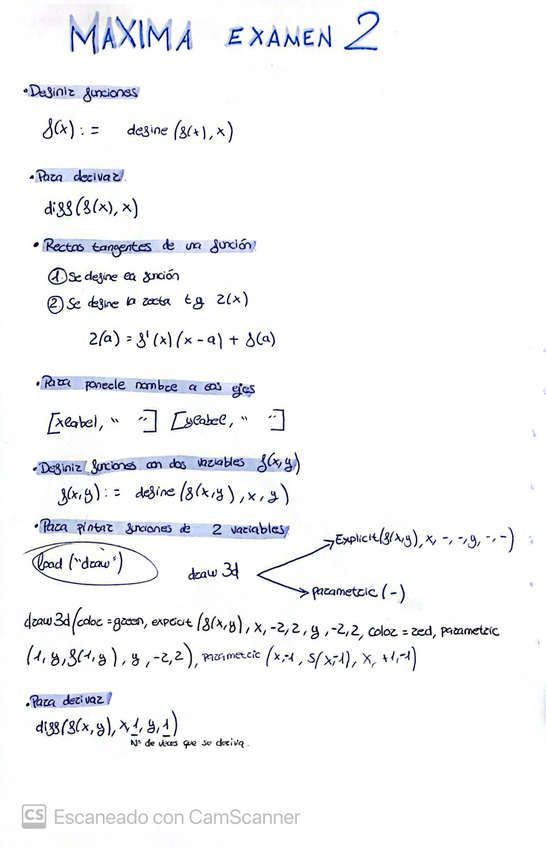 MAXIMA EXAMEN 2
• Definir funciones
f(x) := define (f(x), x)
• Para derivar
diff(f(x), x)
• Rectas tangentes de una función
① Se define la función
② Se define la recta tg r(x)
r(a) = f'(x)(x-a) + f(a)
• Para ponerle nombre a los ejes
[xlabel, " "] [ylabel, " "]
• Definir funciones con dos variables f(x,y)
f(x,y) := define (f(x,y), x, y)
• Para pintar funciones de 2 variables
Explicit(f(x,y), x, -, -, y, -, -)
load ("draw")
draw 3d
parametric (-)
draw 3d(color = green, explicit (f(x,y), x, -2,2, y, -2,2, color = red, parametric
(1, y, f(1,y), y, -2,2), parametric (x,-1, f(x,-1), x, +1,-1)
• Para derivar
diff(f(x,y), x,1, y,1)
Nº de veces que se deriva.
CS Escaneado con CamScanner